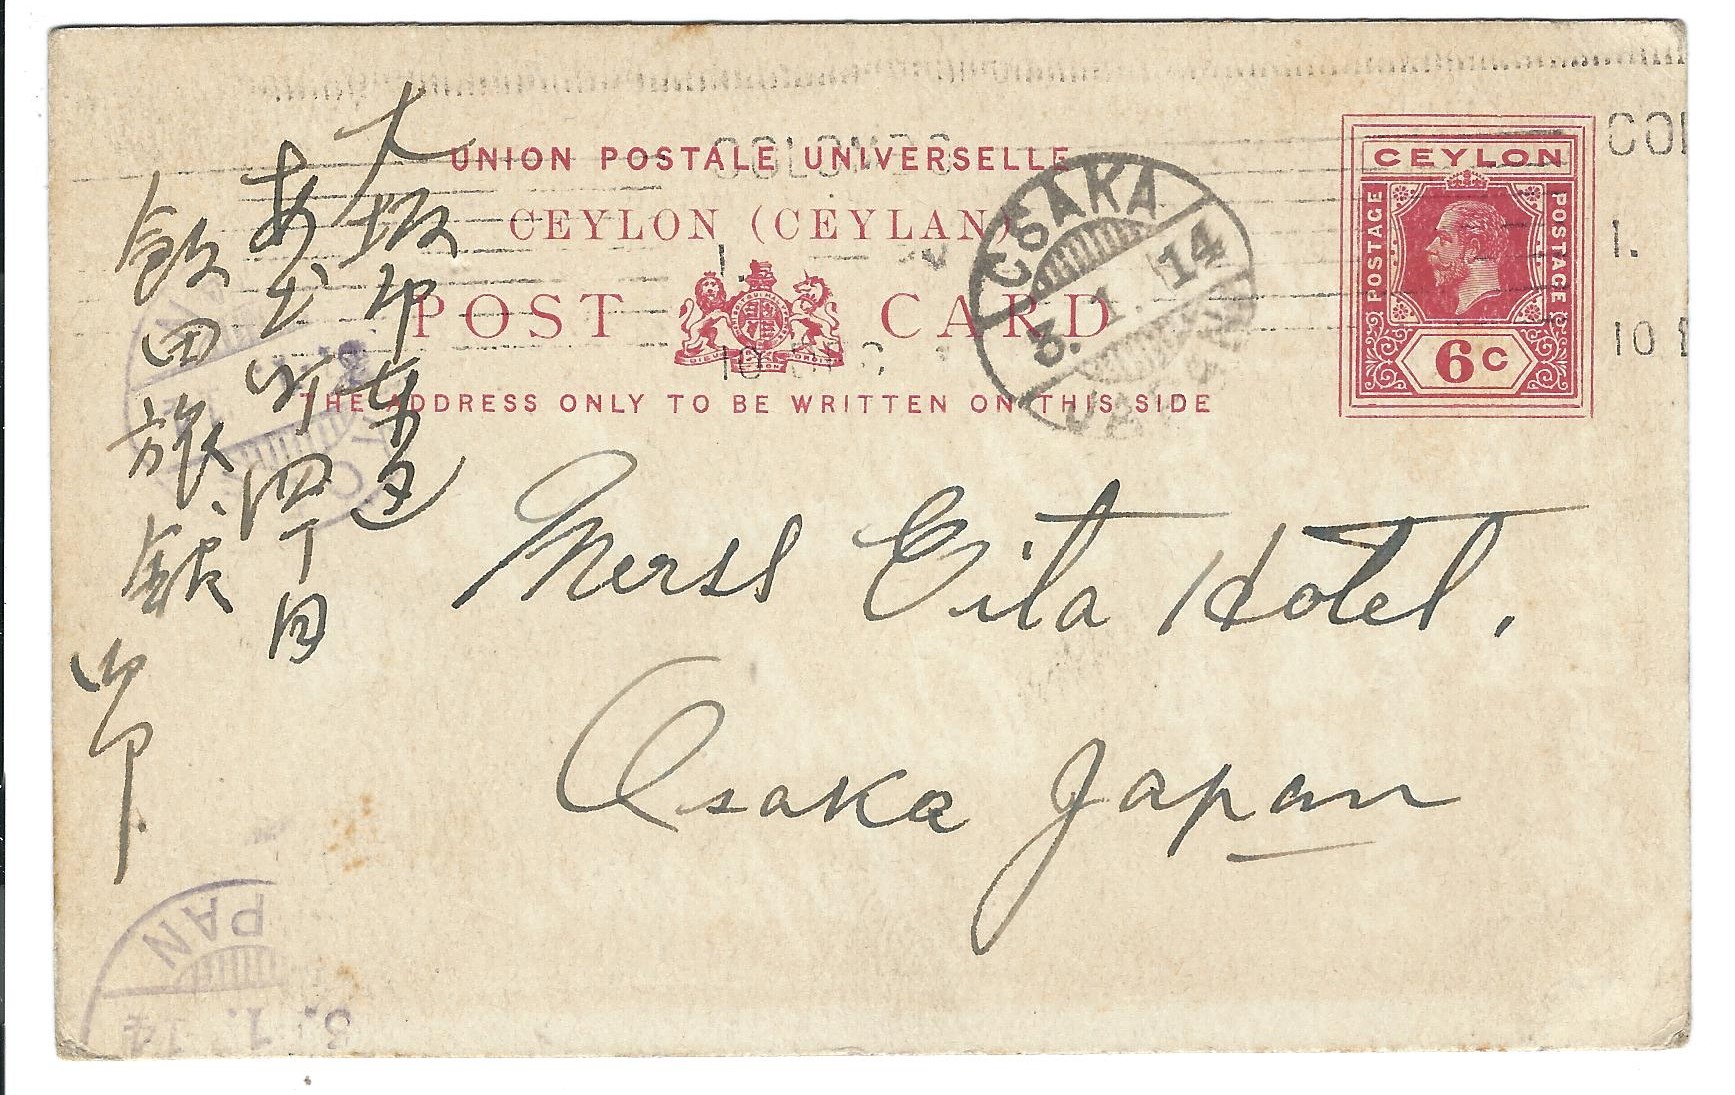 UNION POSTALE UNIVERSELLE
CEYLON (CEYLAN)
POST CARD
THE ADDRESS ONLY TO BE WRITTEN ON THIS SIDE
CEYLON
POSTAGE
POSTAGE
6 C
COLOMBO
1.
10 DEC
COL
1.
10 D
OSAKA
3. 1. 14
JAPAN
Eita Hotel.
Osaka Japan
大坂市東区
四丁目
飯田旅館
PAN
3. 1. 14